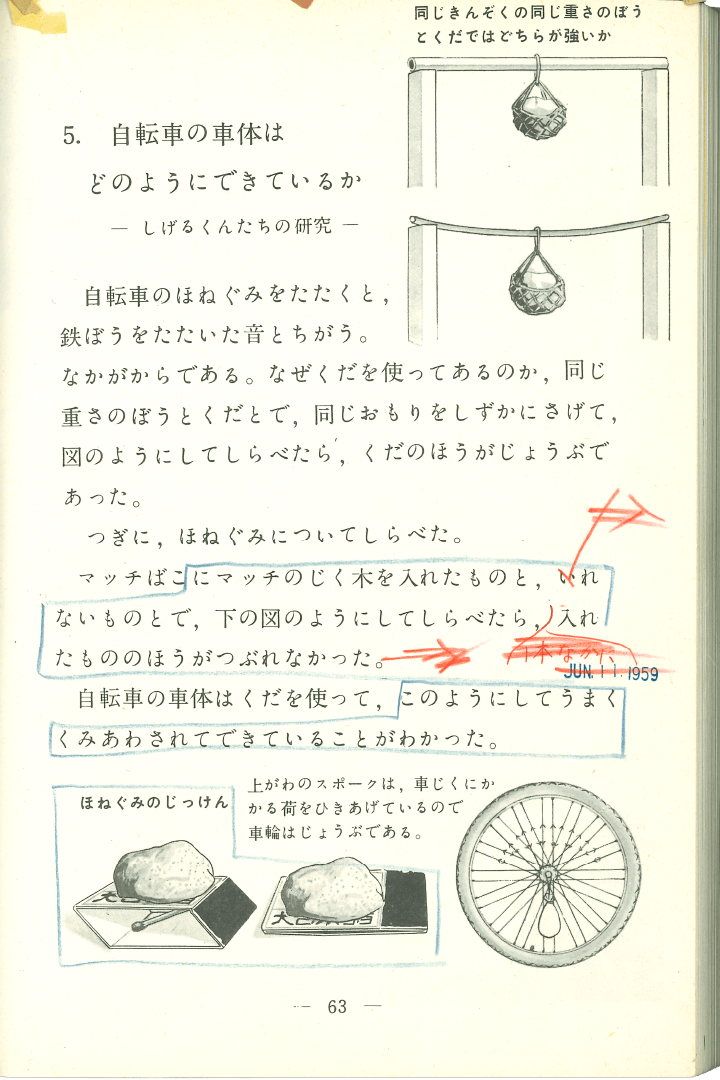 同じきんぞくの同じ重さのぼう
とくだではどちらが強いか
5. 自転車の車体は
どのようにできているか
― しげるくんたちの研究 ―
自転車のほねぐみをたたくと，
鉄ぼうをたたいた音とちがう。
なかがからである。なぜくだを使ってあるのか，同じ
重さのぼうとくだとで，同じおもりをしずかにさげて，
図のようにしてしらべたら，くだのほうがじょうぶで
あった。
つぎに，ほねぐみについてしらべた。
マッチばこにマッチのじく木を入れたものと，いれ
ないものとで，下の図のようにしてしらべたら，入れ
たもののほうがつぶれなかった。
1本なかに
JUN. 11. 1959
自転車の車体はくだを使って，このようにしてうまく
くみあわされてできていることがわかった。
ほねぐみのじっけん
上がわのスポークは，車じくにか
かる荷をひきあげているので
車輪はじょうぶである。
― 63 ―